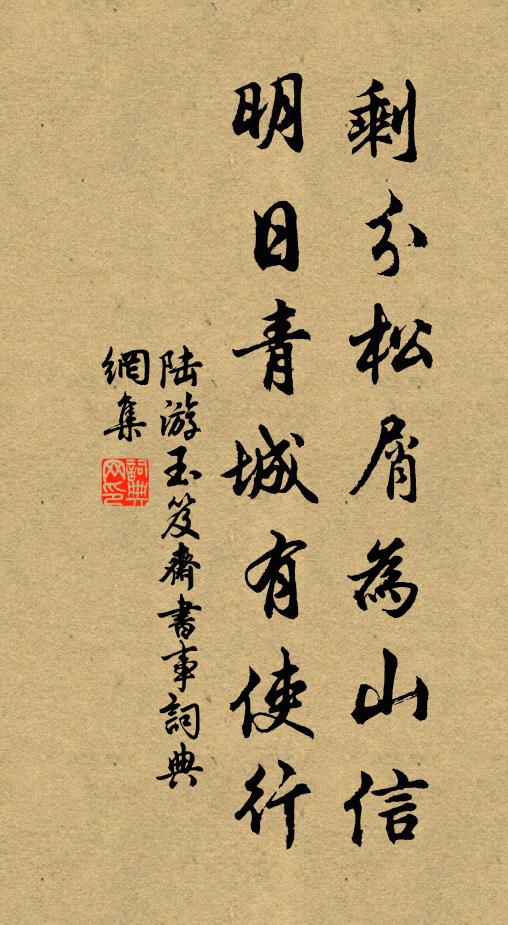 剩分松屑為山信
明日青城有使行
陸游玉笈齋書事詞典
網集
詞典
網印